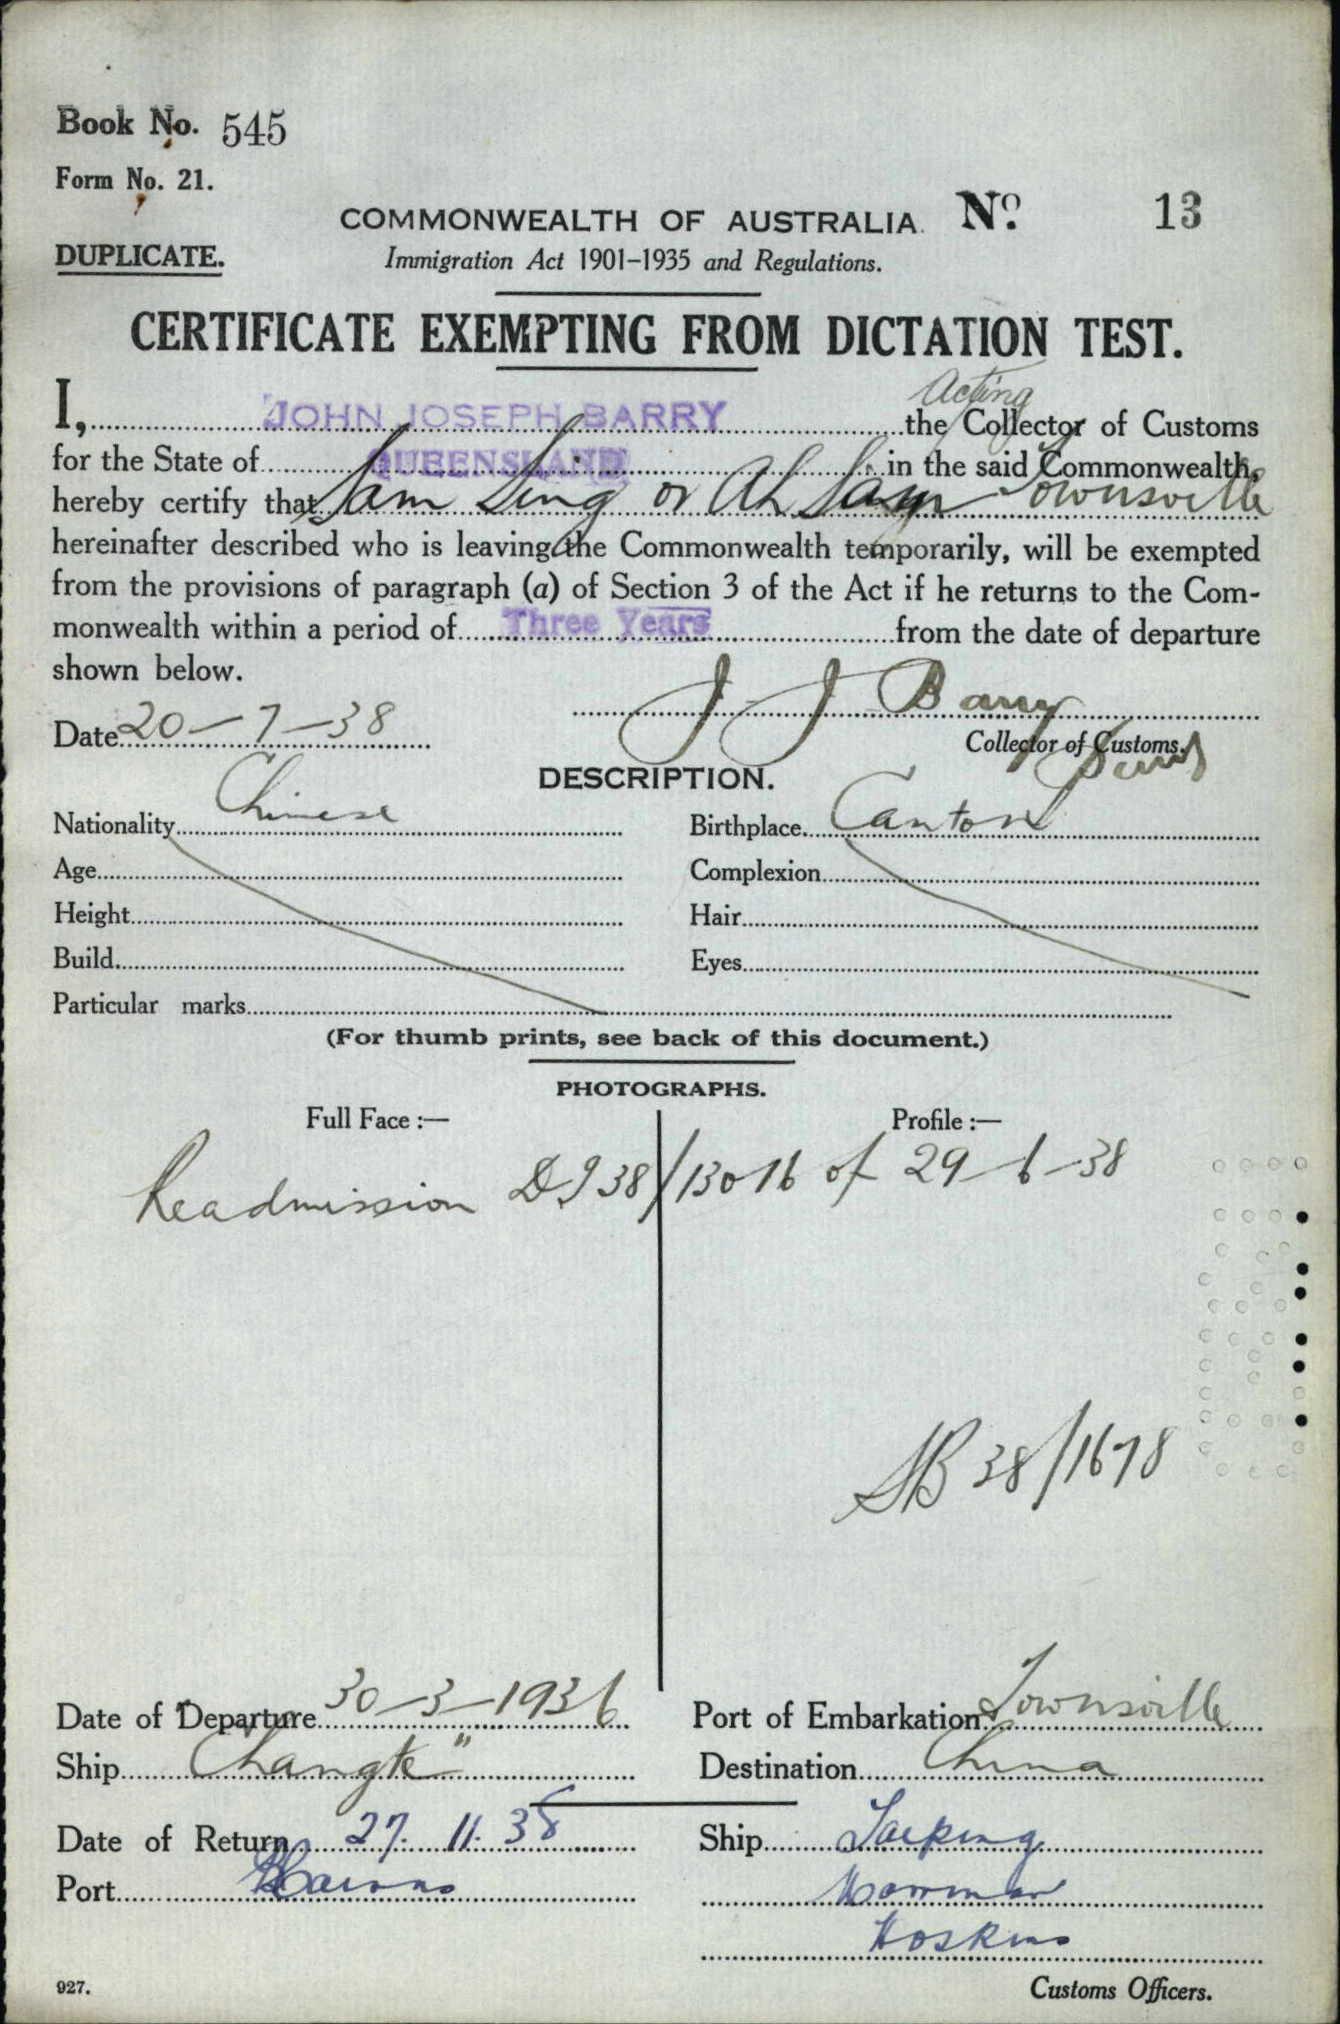 Book No. 545
Form No. 21.
COMMONWEALTH OF AUSTRALIA. No. 13
DUPLICATE.
Immigration Act 1901-1935 and Regulations.
CERTIFICATE EXEMPTING FROM DICTATION TEST.
Acting
I, JOHN JOSEPH BARRY the Collector of Customs
for the State of QUEENSLAND in the said Commonwealth,
hereby certify that Sam Sing or Ah Sam Townsville
hereinafter described who is leaving the Commonwealth temporarily, will be exempted
from the provisions of paragraph (a) of Section 3 of the Act if he returns to the Com-
monwealth within a period of Three Years from the date of departure
shown below.
J J Barry
Date 20-7-38
Collector of Customs.
DESCRIPTION.
Nationality Chinese Birthplace Canton
Age Complexion
Height Hair
Build Eyes
Particular marks
(For thumb prints, see back of this document.)
PHOTOGRAPHS.
Full Face :— Profile :—
Readmission 38/13016 of 29-6-38
SB 38/1678
Date of Departure 30-3-1936 Port of Embarkation Townsville
Ship Changte" Destination China
Date of Return 27. 11. 38 Ship Taiping
Port Cairns
Hoskins
927. Customs Officers.